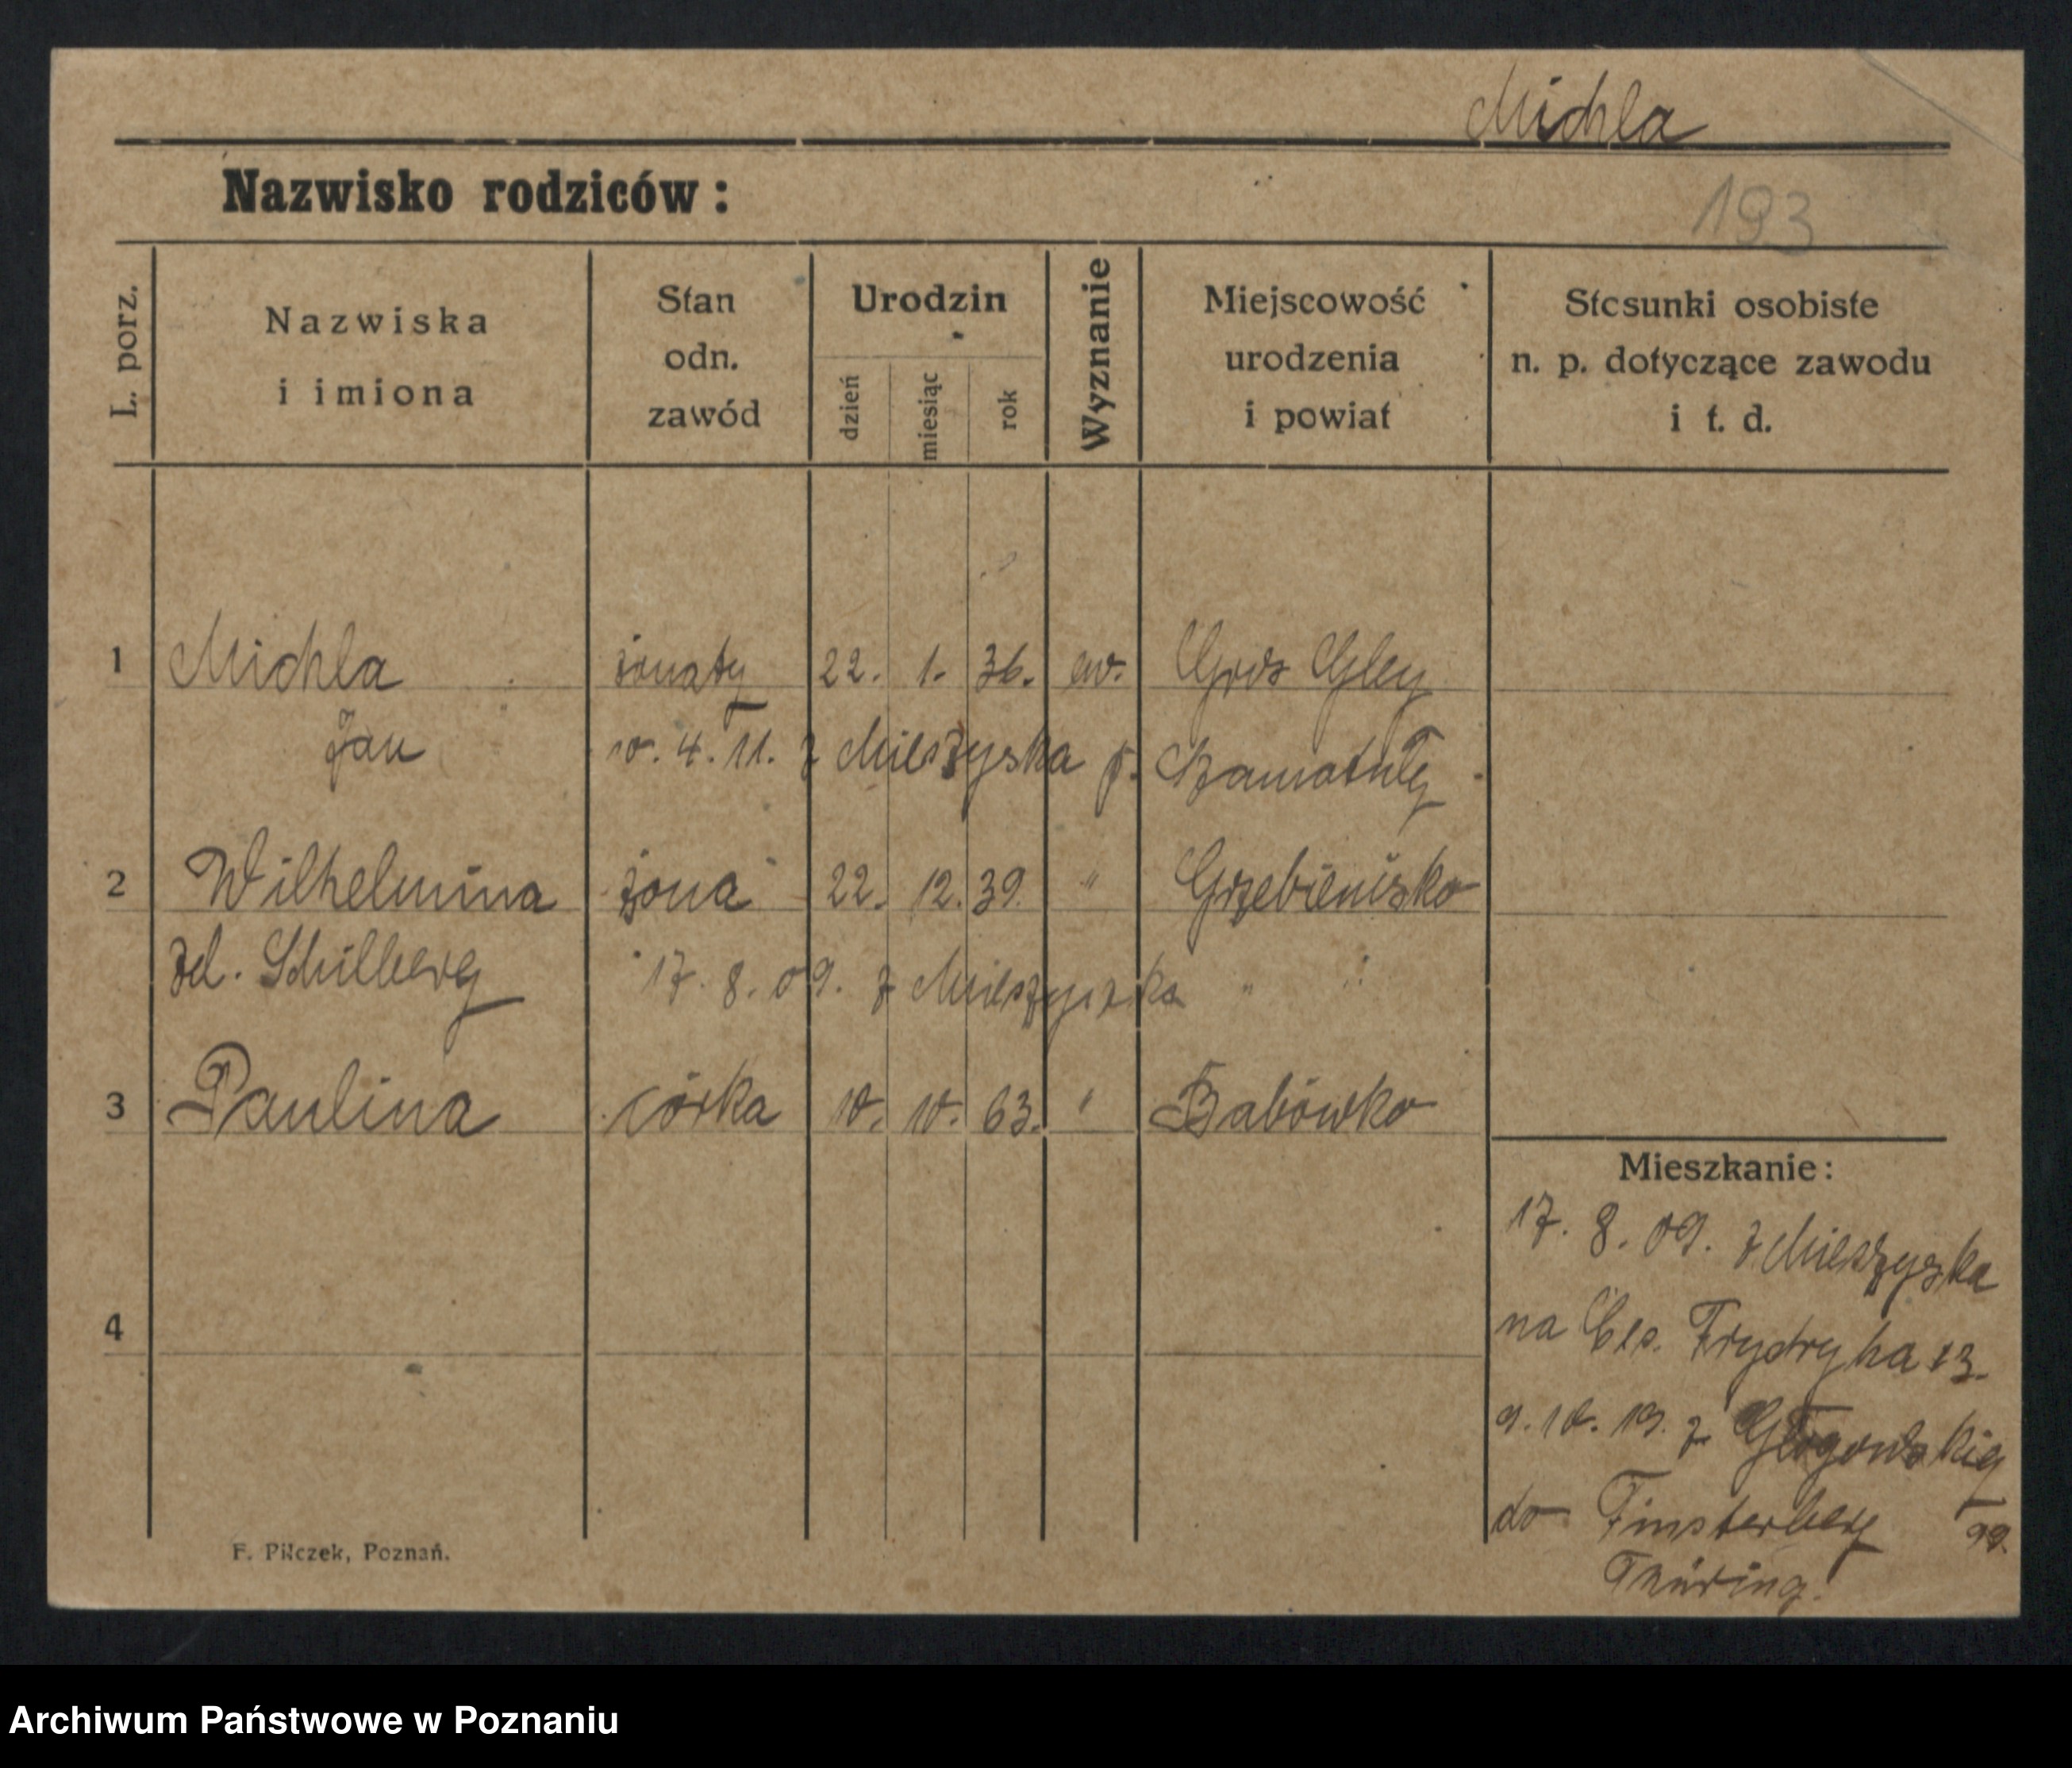 Michla
Nazwisko rodziców:
193
L. porz.
Nazwiska
i imiona
Stan
odn.
zawód
Urodzin
dzień
miesiąc
rok
Wyznanie
Miejscowość
urodzenia
i powiat
Stosunki osobiste
n. p. dotyczące zawodu
i t. d.
1 Michla żonaty 22. 1. 36. ew. Gros Gley
Jan w. 4. 11. z Mieszyska p. Szamotuły
2 Wilhelmina żona 22. 12. 39. " Grzebienisko
zd. Schilberg 17. 8. 09. z Mieszyska " "
3 Paulina córka 10. 10. 63. " Babówko
4
Mieszkanie:
17. 8. 09. z Mieszyska
na Ces. Frydryka 13.
9. 10. 19. z Głogowskiej 99.
do Finsterberg
Thüring.
F. Pilczek, Poznań.
Archiwum Państwowe w Poznaniu